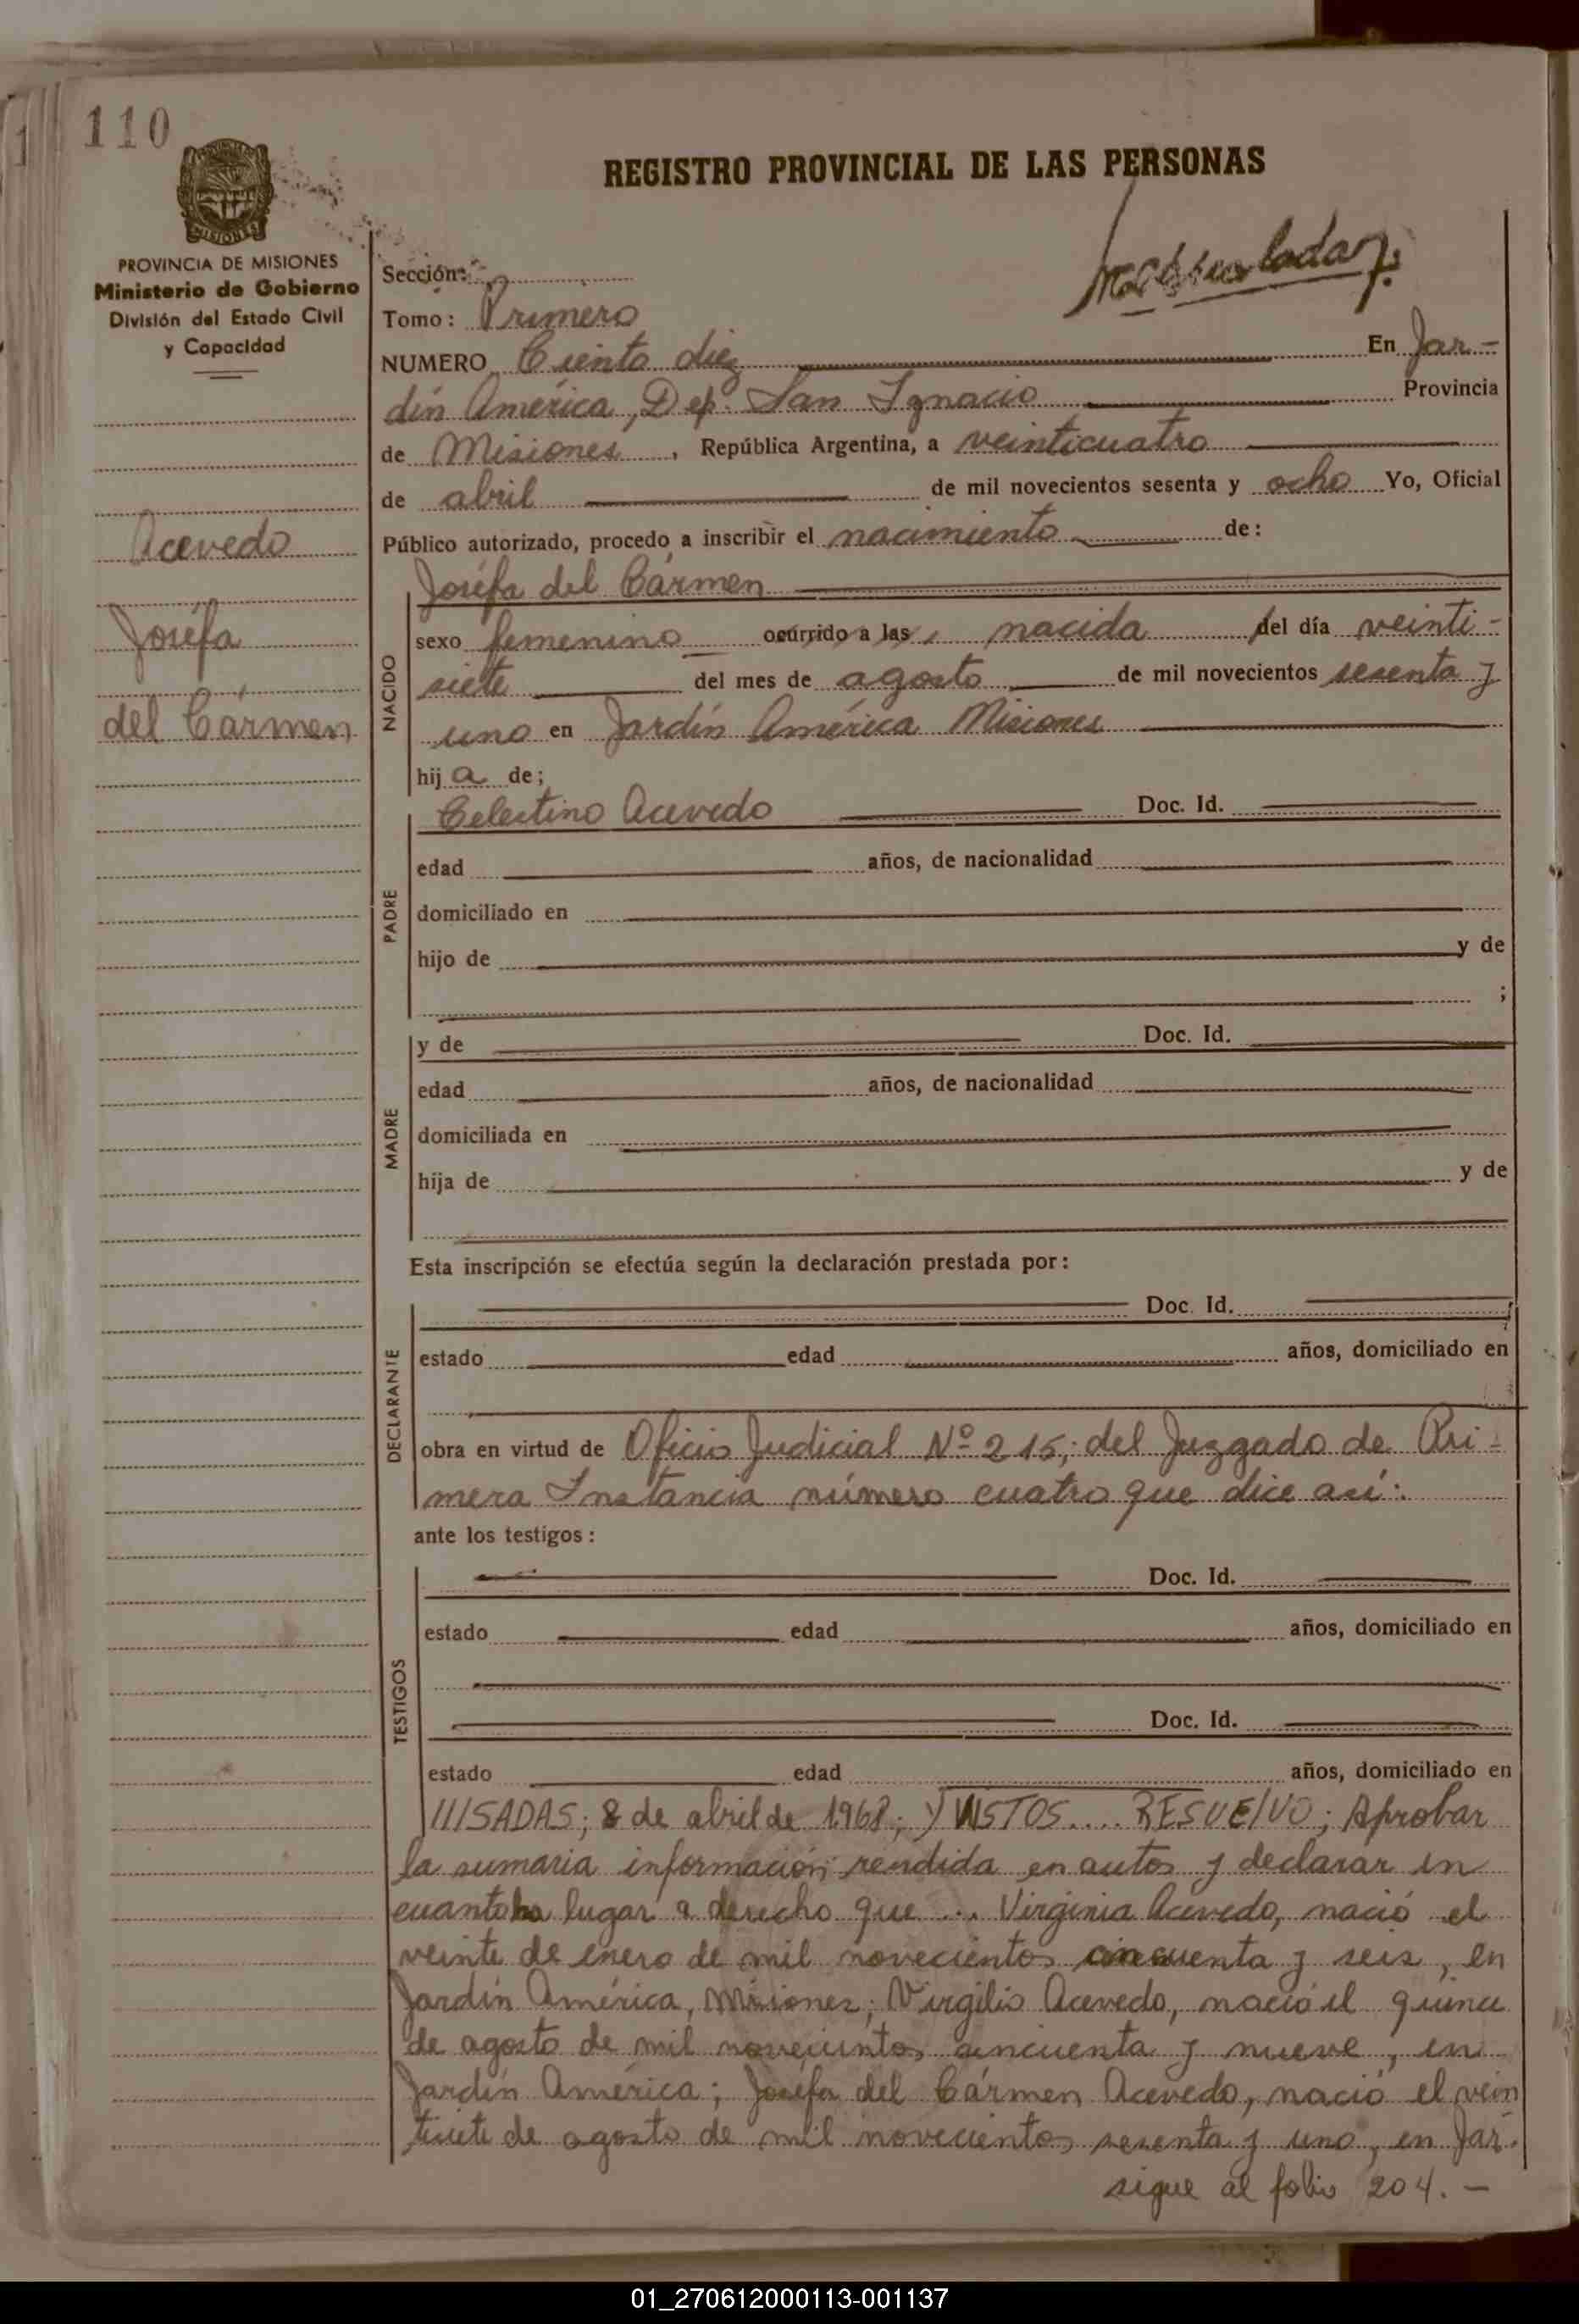 110
PROVINCIA DE MISIONES
Ministerio de Gobierno
División del Estado Civil
y Capacidad
Acevedo
Joséfa
del Cármen
REGISTRO PROVINCIAL DE LAS PERSONAS
Sección:
Tomo: Primero
NUMERO Ciento diez En Jar-
dín América, Dep. San Ignacio Provincia
de Misiones, República Argentina, a veinticuatro
de abril de mil novecientos sesenta y ocho Yo, Oficial
Público autorizado, procedo a inscribir el nacimiento de:
Joséfa del Cármen
NACIDO
sexo femenino ocurrido a las, nacida del día veinti-
siete del mes de agosto de mil novecientos sesenta y
uno en Jardín América Misiones
hija de;
PADRE
Celestino Acevedo Doc. Id.
edad años, de nacionalidad
domiciliado en
hijo de y de
;
MADRE
y de Doc. Id.
edad años, de nacionalidad
domiciliada en
hija de y de
Esta inscripción se efectúa según la declaración prestada por:
DECLARANTE
Doc. Id.
estado edad años, domiciliado en
obra en virtud de Oficio Judicial Nº 215; del Juzgado de Pri-
mera Instancia número cuatro que dice así:
ante los testigos:
TESTIGOS
Doc. Id.
estado edad años, domiciliado en
Doc. Id.
estado edad años, domiciliado en
///SADAS; 8 de abril de 1968; Y VISTOS.... RESUELVO; Aprobar
la sumaria información rendida en autos y declarar en
cuanto ha lugar a derecho que ... Virginia Acevedo, nació el
veinte de enero de mil novecientos cincuenta y seis, en
Jardín América, Misiones; Virgilio Acevedo, nació el quince
de agosto de mil novecientos cincuenta y nueve, en
Jardín América; Joséfa del Cármen Acevedo, nació el vein
tisiete de agosto de mil novecientos sesenta y uno, en Jar-
sigue al folio 204.-
01_270612000113-001137